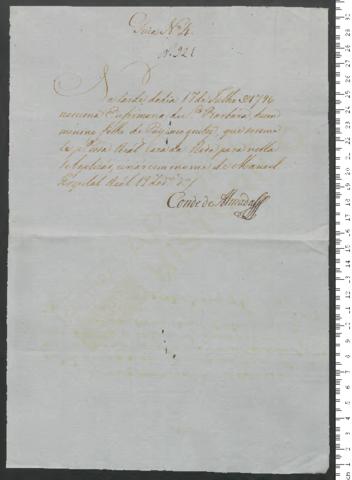 Guia Nº 4.
Nº 221
Na tarde do dia 17 de Julho de 1796
nesceu na Enfirmaria de Sta Barbara, hum
menino filho de Pays incognitos, que se reme
te p.ª esta Real Caza da Roda para nella
se baptizar, e criar com o nome de Manoel
Hospital Real 19 do d.º
Conde de Almada